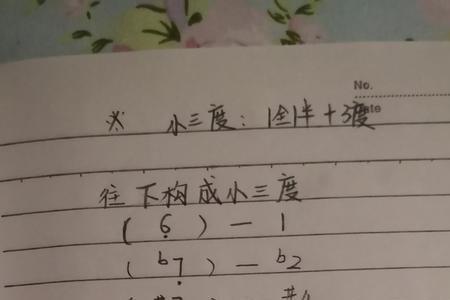 No.
Date
※ 小三度: 1全1半+3度
往下构成小三度
( 6̣ ) — 1
( ᵇ7̣ ) — ᵇ2